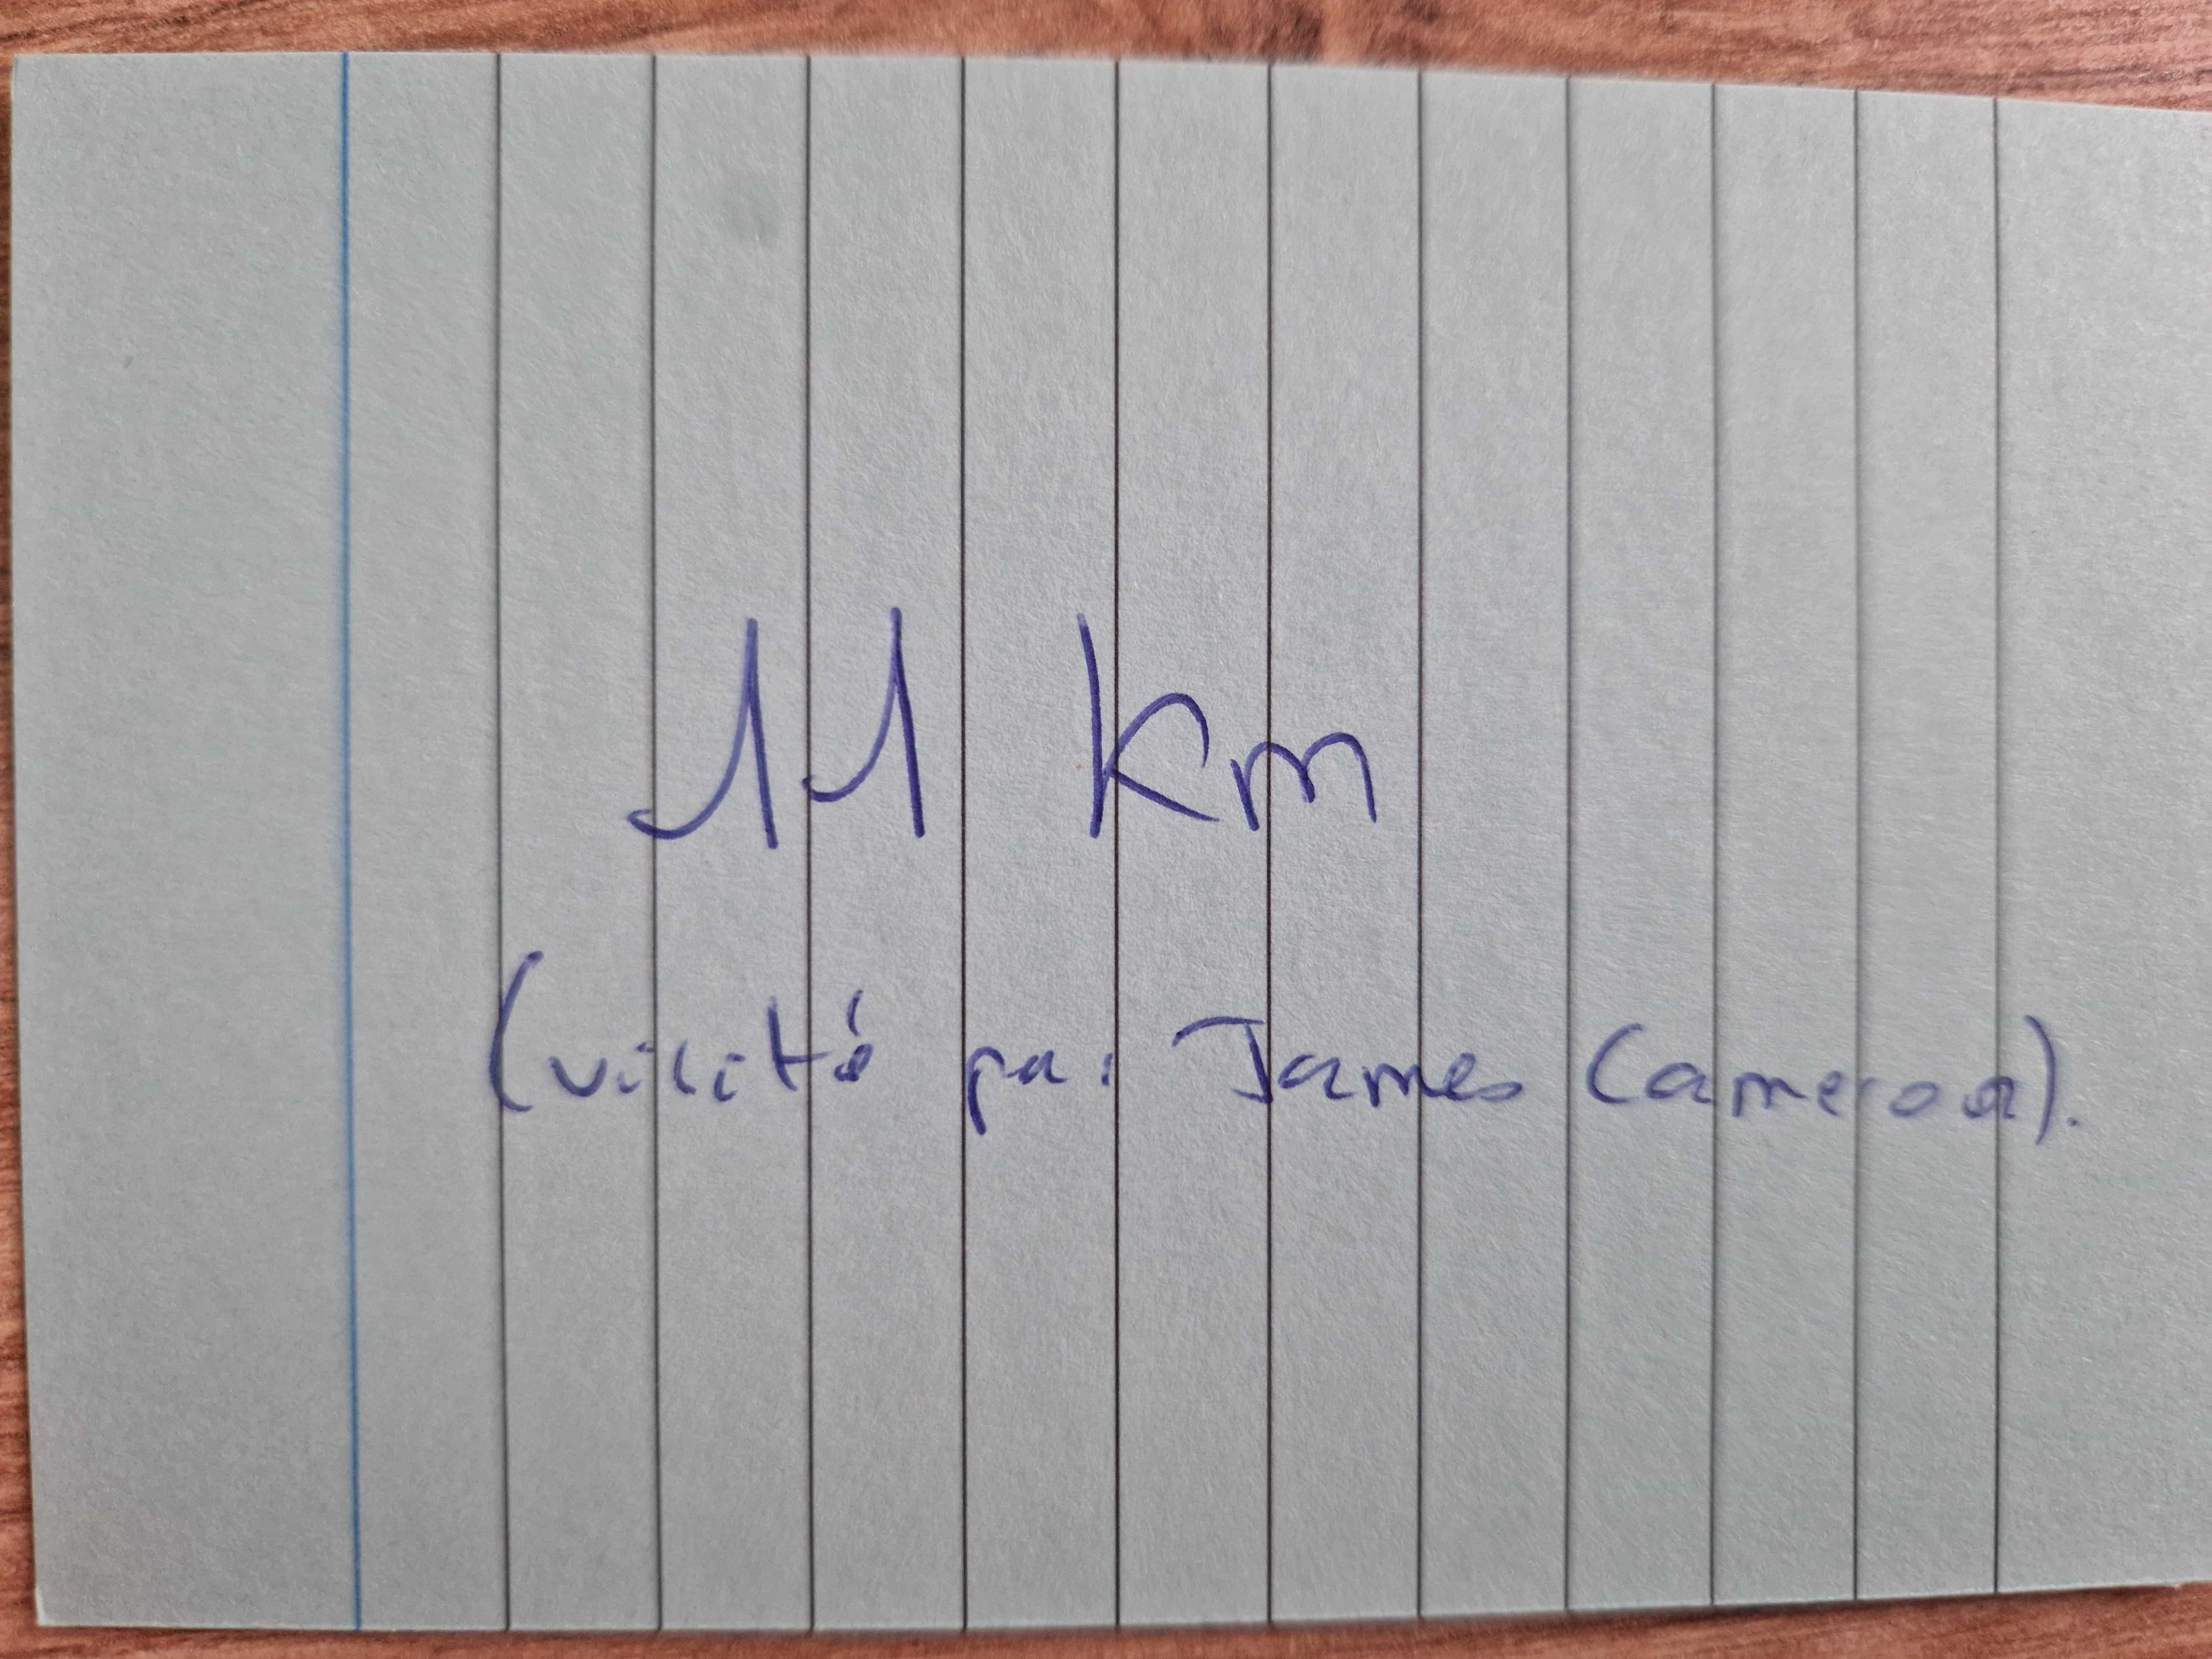 11 km
(visité par James Cameron).